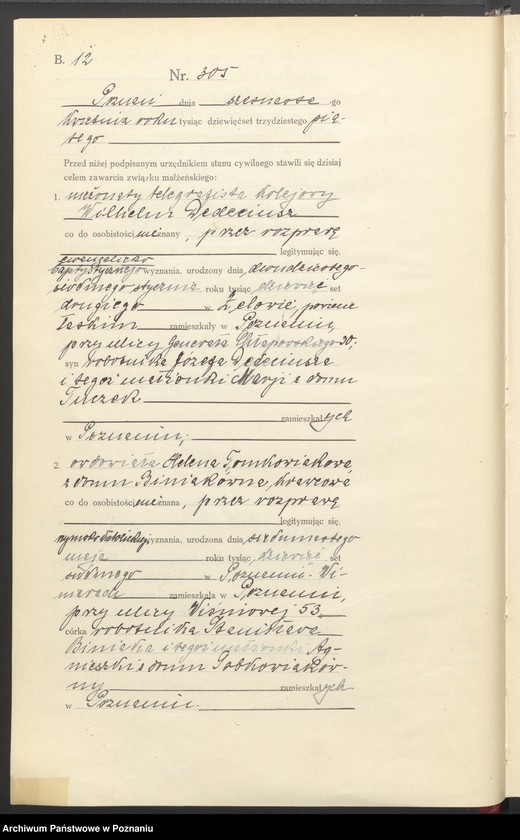 B. 12
Nr. 305
Poznań dnia szesnaste -go
kwietnia roku tysiąc dziewięćset trzydziestego pią-
tego
Przed niżej podpisanym urzędnikiem stanu cywilnego stawili się dzisiaj
celem zawarcia związku małżeńskiego:
1. nieżonaty telegrafista kolejowy
Wilhelm Dedeciusz
co do osobistości nieznany, przez rozprawę
legitymując się.
ewangelicko
baptystycznego wyznania, urodzony dnia dwudziestego-
siódmego stycznia roku tysiąc dziewięć set
drugiego w Zelowie, powiecie
Łaskim zamieszkały w Poznaniu,
przy ulicy Generała 30;
syn robotnika Józefa Dedeciusza
i tegoż małżonki Marji z domu
Tuczek
zamieszkałych
w Poznaniu;
2. owdowiała Helena Tomkowiakowa
z domu Biniakówna, krawcowa
co do osobistości nieznana, przez rozprawę
legitymując się,
rzymskokatolickiego wyznania, urodzona dnia siedmnastego
maja roku tysiąc dziewięć set
siódmego w Poznaniu - Wi-
niarach zamieszkała w Poznaniu,
przy ulicy Wiśniowej 53
córka robotnika Stanisława
Biniaka i tegoż małżonki Ag-
nieszki z domu Sobkowiaków-
ny zamieszkałych
w Poznaniu.
Archiwum Państwowe w Poznaniu